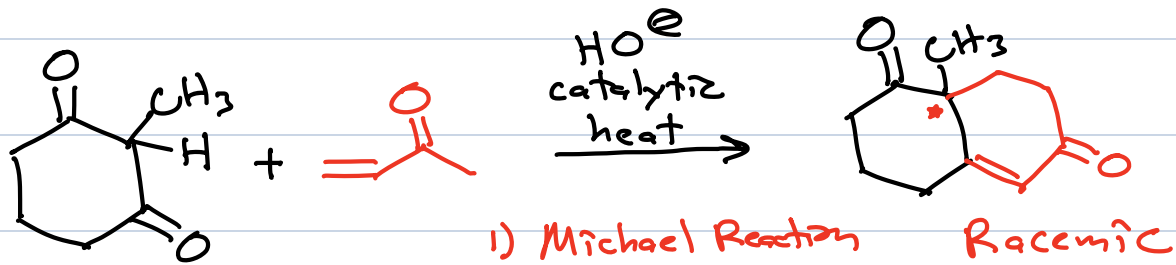 O
CH3
H
O
+
O
HO⊖
catalytic
heat
O
CH3
*
O
1) Michael Reaction
Racemic